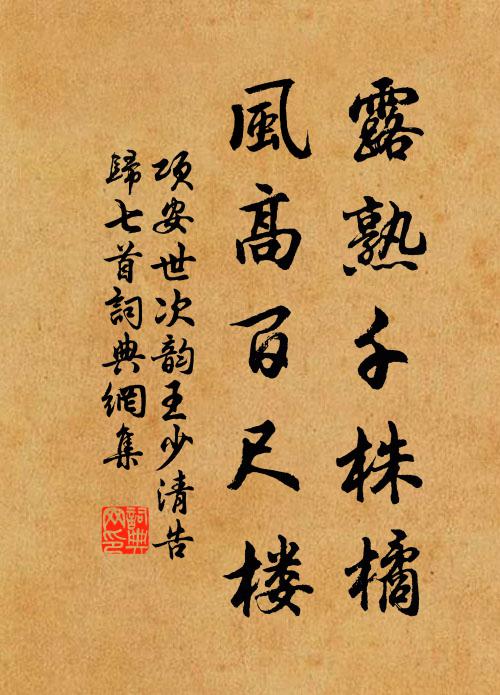 露熟千株橘
風高百尺楼
項安世次韵王少清告
歸七首詞典網集
詞典網印